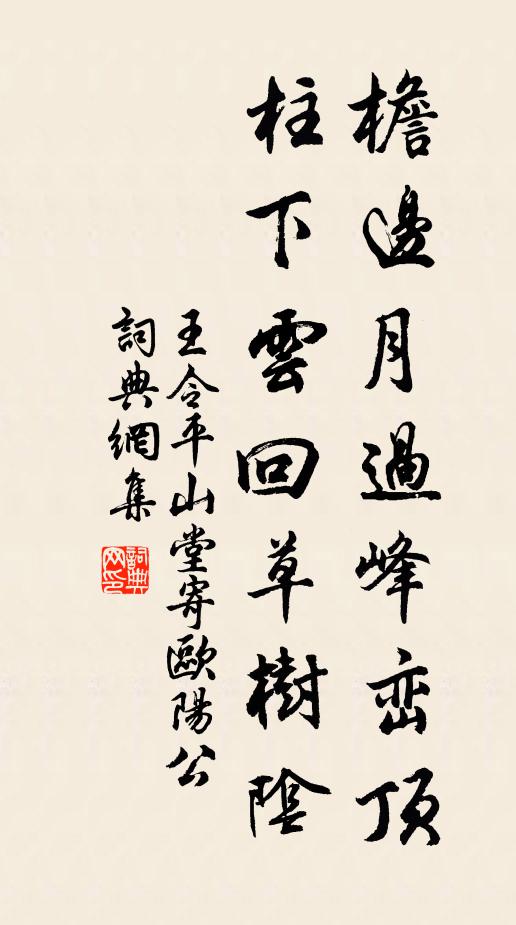 檐邊月過峰巒頂
柱下雲回草樹陰
王令平山堂寄歐陽公
詞典網集
詞典網印